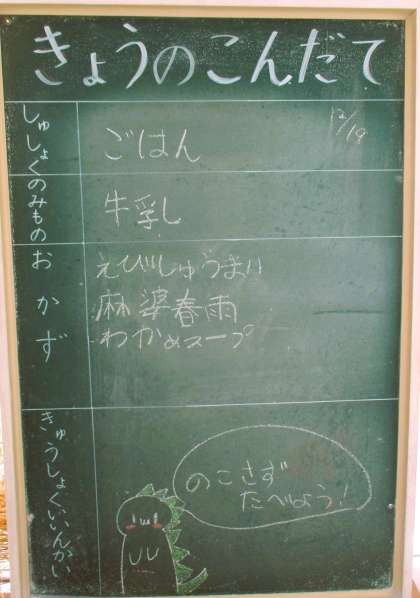 きょうのこんだて
12/19
しゅしょく
ごはん
のみもの
牛乳
おかず
えびしゅうまい
麻婆春雨
わかめスープ
きゅうしょくいいんかい
のこさず
たべよう!